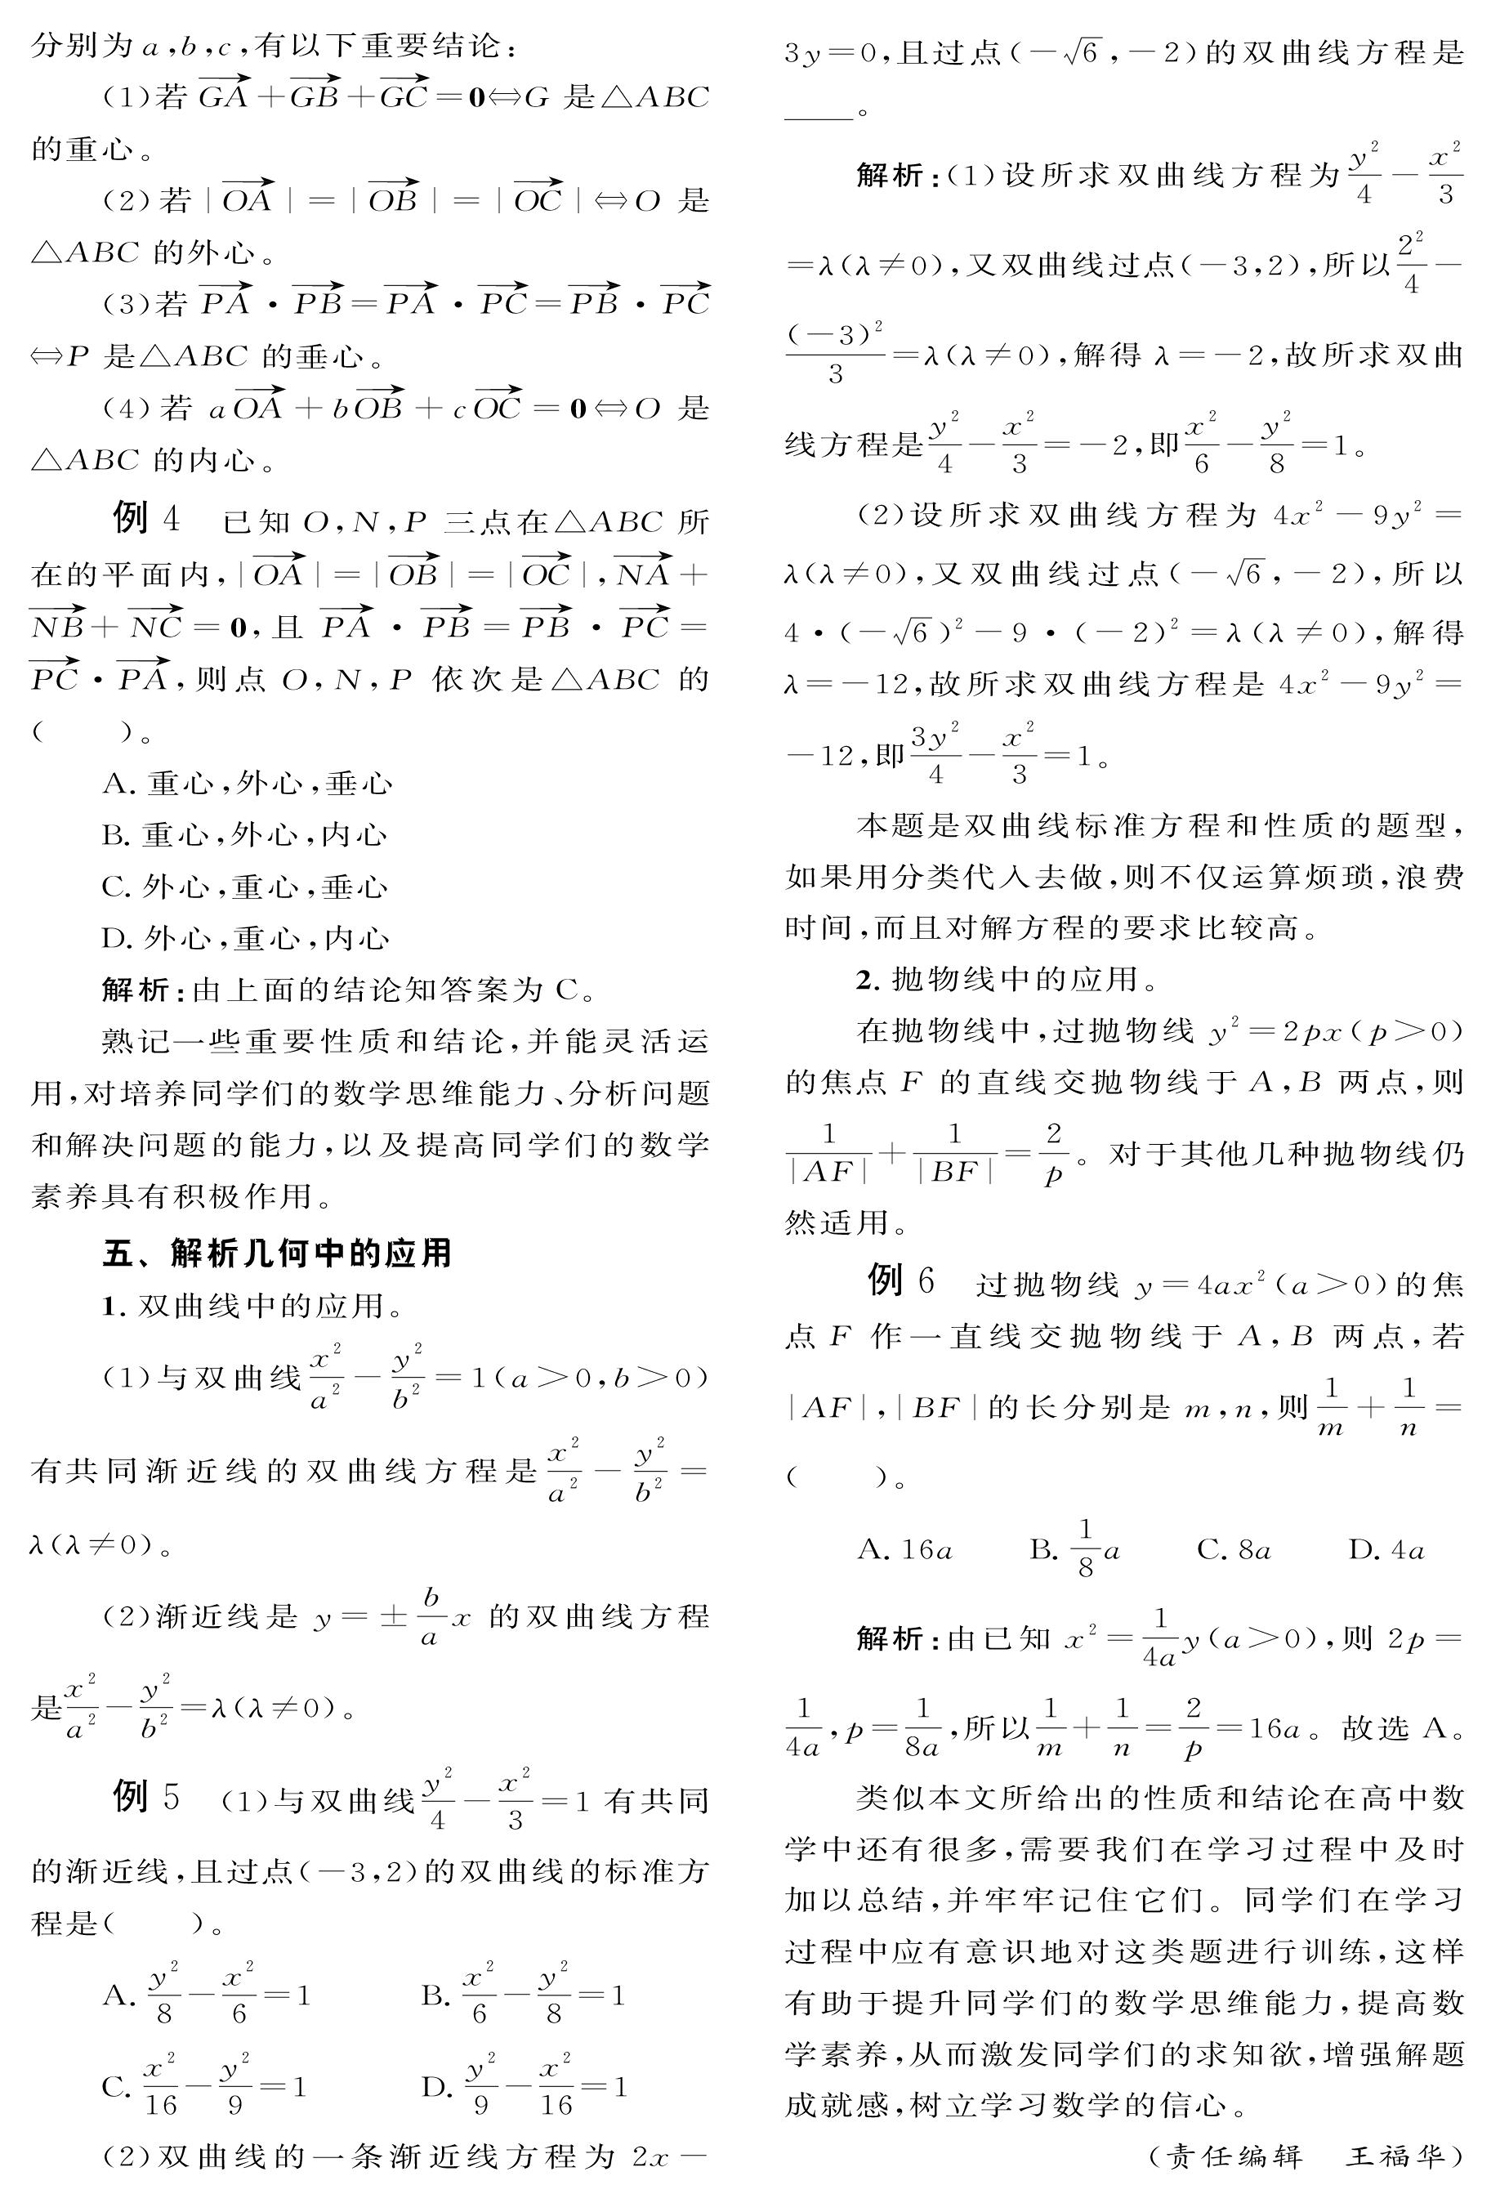 分别为a,b,c,有以下重要结论:
(1)若$\overrightarrow{GA}+\overrightarrow{GB}+\overrightarrow{GC}=\mathbf{0}$⇔G 是△ABC
的重心。
(2)若$|\overrightarrow{OA}|=|\overrightarrow{OB}|=|\overrightarrow{OC}|$⇔O 是
△ABC 的外心。
(3)若$\overrightarrow{PA}·\overrightarrow{PB}=\overrightarrow{PA}·\overrightarrow{PC}=\overrightarrow{PB}·\overrightarrow{PC}$
⇔P 是△ABC 的垂心。
(4)若 $a\overrightarrow{OA}+b\overrightarrow{OB}+c\overrightarrow{OC}=\mathbf{0}$⇔O 是
△ABC 的内心。
例 4 已知 O,N,P 三点在△ABC 所
在的平面内,$|\overrightarrow{OA}|=|\overrightarrow{OB}|=|\overrightarrow{OC}|$,$\overrightarrow{NA}+$
$\overrightarrow{NB}+\overrightarrow{NC}=\mathbf{0}$,且 $\overrightarrow{PA}·\overrightarrow{PB}=\overrightarrow{PB}·\overrightarrow{PC}=$
$\overrightarrow{PC}·\overrightarrow{PA}$,则点 O,N,P 依次是△ABC 的
( )。
A. 重心,外心,垂心
B. 重心,外心,内心
C. 外心,重心,垂心
D. 外心,重心,内心
解析:由上面的结论知答案为 C。
熟记一些重要性质和结论,并能灵活运
用,对培养同学们的数学思维能力、分析问题
和解决问题的能力,以及提高同学们的数学
素养具有积极作用。
五、解析几何中的应用
1. 双曲线中的应用。
(1)与双曲线$\frac{x^2}{a^2}-\frac{y^2}{b^2}=1(a>0,b>0)$
有共同渐近线的双曲线方程是$\frac{x^2}{a^2}-\frac{y^2}{b^2}=$
λ(λ≠0)。
(2)渐近线是 $y=±\frac{b}{a}x$ 的双曲线方程
是$\frac{x^2}{a^2}-\frac{y^2}{b^2}=λ(λ≠0)$。
例 5 (1)与双曲线$\frac{y^2}{4}-\frac{x^2}{3}=1$ 有共同
的渐近线,且过点(-3,2)的双曲线的标准方
程是( )。
A. $\frac{y^2}{8}-\frac{x^2}{6}=1$ B. $\frac{x^2}{6}-\frac{y^2}{8}=1$
C. $\frac{x^2}{16}-\frac{y^2}{9}=1$ D. $\frac{y^2}{9}-\frac{x^2}{16}=1$
(2)双曲线的一条渐近线方程为 2x-
3y=0,且过点$(-\sqrt{6},-2)$的双曲线方程是
____。
解析:(1)设所求双曲线方程为$\frac{y^2}{4}-\frac{x^2}{3}$
=λ(λ≠0),又双曲线过点(-3,2),所以$\frac{2^2}{4}-$
$\frac{(-3)^2}{3}=λ(λ≠0)$,解得 λ=-2,故所求双曲
线方程是$\frac{y^2}{4}-\frac{x^2}{3}=-2$,即$\frac{x^2}{6}-\frac{y^2}{8}=1$。
(2)设所求双曲线方程为 $4x^2-9y^2=$
λ(λ≠0),又双曲线过点$(-\sqrt{6},-2)$,所以
$4·(-\sqrt{6})^2-9·(-2)^2=λ(λ≠0)$,解得
λ=-12,故所求双曲线方程是 $4x^2-9y^2=$
-12,即$\frac{3y^2}{4}-\frac{x^2}{3}=1$。
本题是双曲线标准方程和性质的题型,
如果用分类代入去做,则不仅运算烦琐,浪费
时间,而且对解方程的要求比较高。
2. 抛物线中的应用。
在抛物线中,过抛物线 $y^2=2px(p>0)$
的焦点 F 的直线交抛物线于 A,B 两点,则
$\frac{1}{|AF|}+\frac{1}{|BF|}=\frac{2}{p}$。对于其他几种抛物线仍
然适用。
例 6 过抛物线 $y=4ax^2(a>0)$的焦
点 F 作一直线交抛物线于 A,B 两点,若
|AF|,|BF|的长分别是 m,n,则$\frac{1}{m}+\frac{1}{n}=$
( )。
A. 16a B. $\frac{1}{8}a$ C. 8a D. 4a
解析:由已知 $x^2=\frac{1}{4a}y(a>0)$,则 2p=
$\frac{1}{4a}$,$p=\frac{1}{8a}$,所以$\frac{1}{m}+\frac{1}{n}=\frac{2}{p}=16a$。故选 A。
类似本文所给出的性质和结论在高中数
学中还有很多,需要我们在学习过程中及时
加以总结,并牢牢记住它们。同学们在学习
过程中应有意识地对这类题进行训练,这样
有助于提升同学们的数学思维能力,提高数
学素养,从而激发同学们的求知欲,增强解题
成就感,树立学习数学的信心。
(责任编辑 王福华)